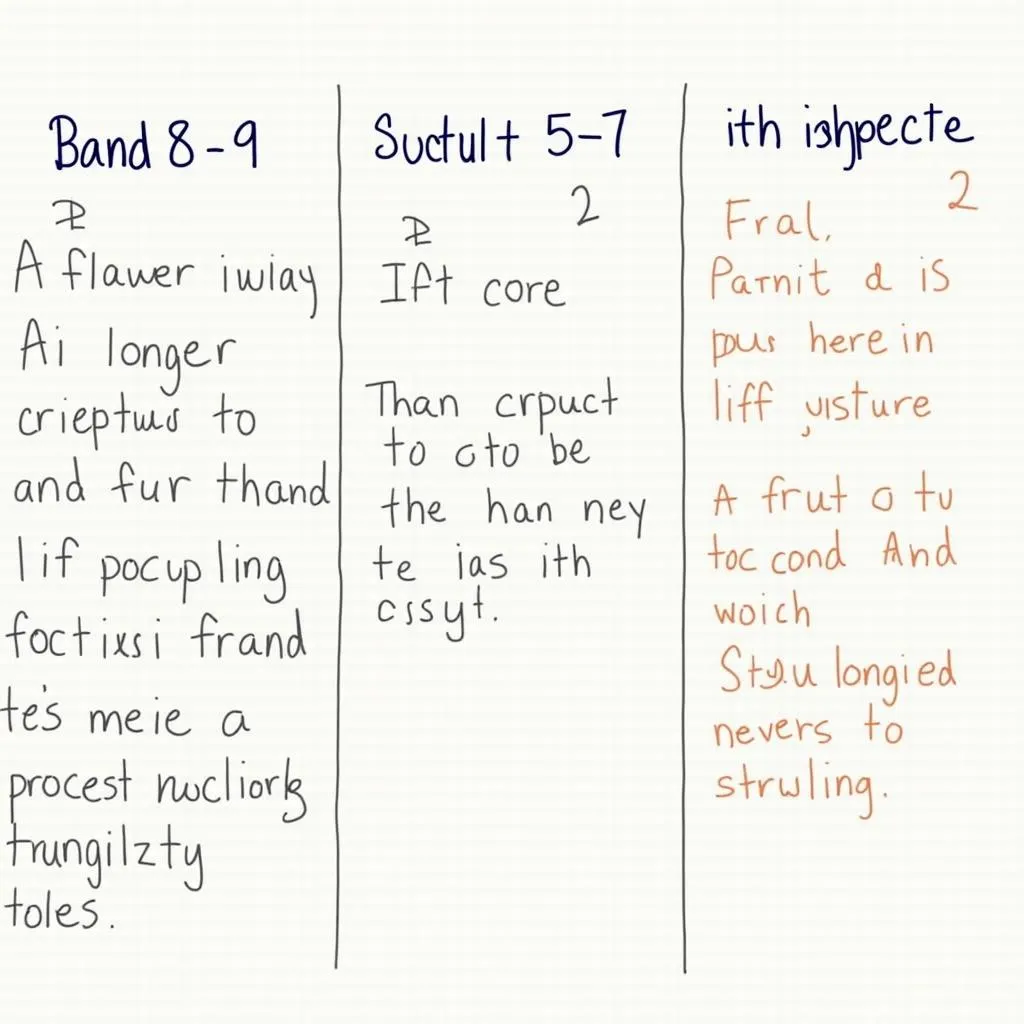 Band 8-9
A flawer iwlay
Ai longer
crieptwd to
and fur thand
lif pocupling
foctixsi frand
te's meie a
procest
trungilzty
toles.
Suctult 5-7
2
Ift core
Than crpuct
to cto be
the han ney
te ias ith
cssyt.
ith
2
Fral.
Parnit d is
here in
liff
A frut o tu
toc cond And
woich
longied
nevers to
struling.